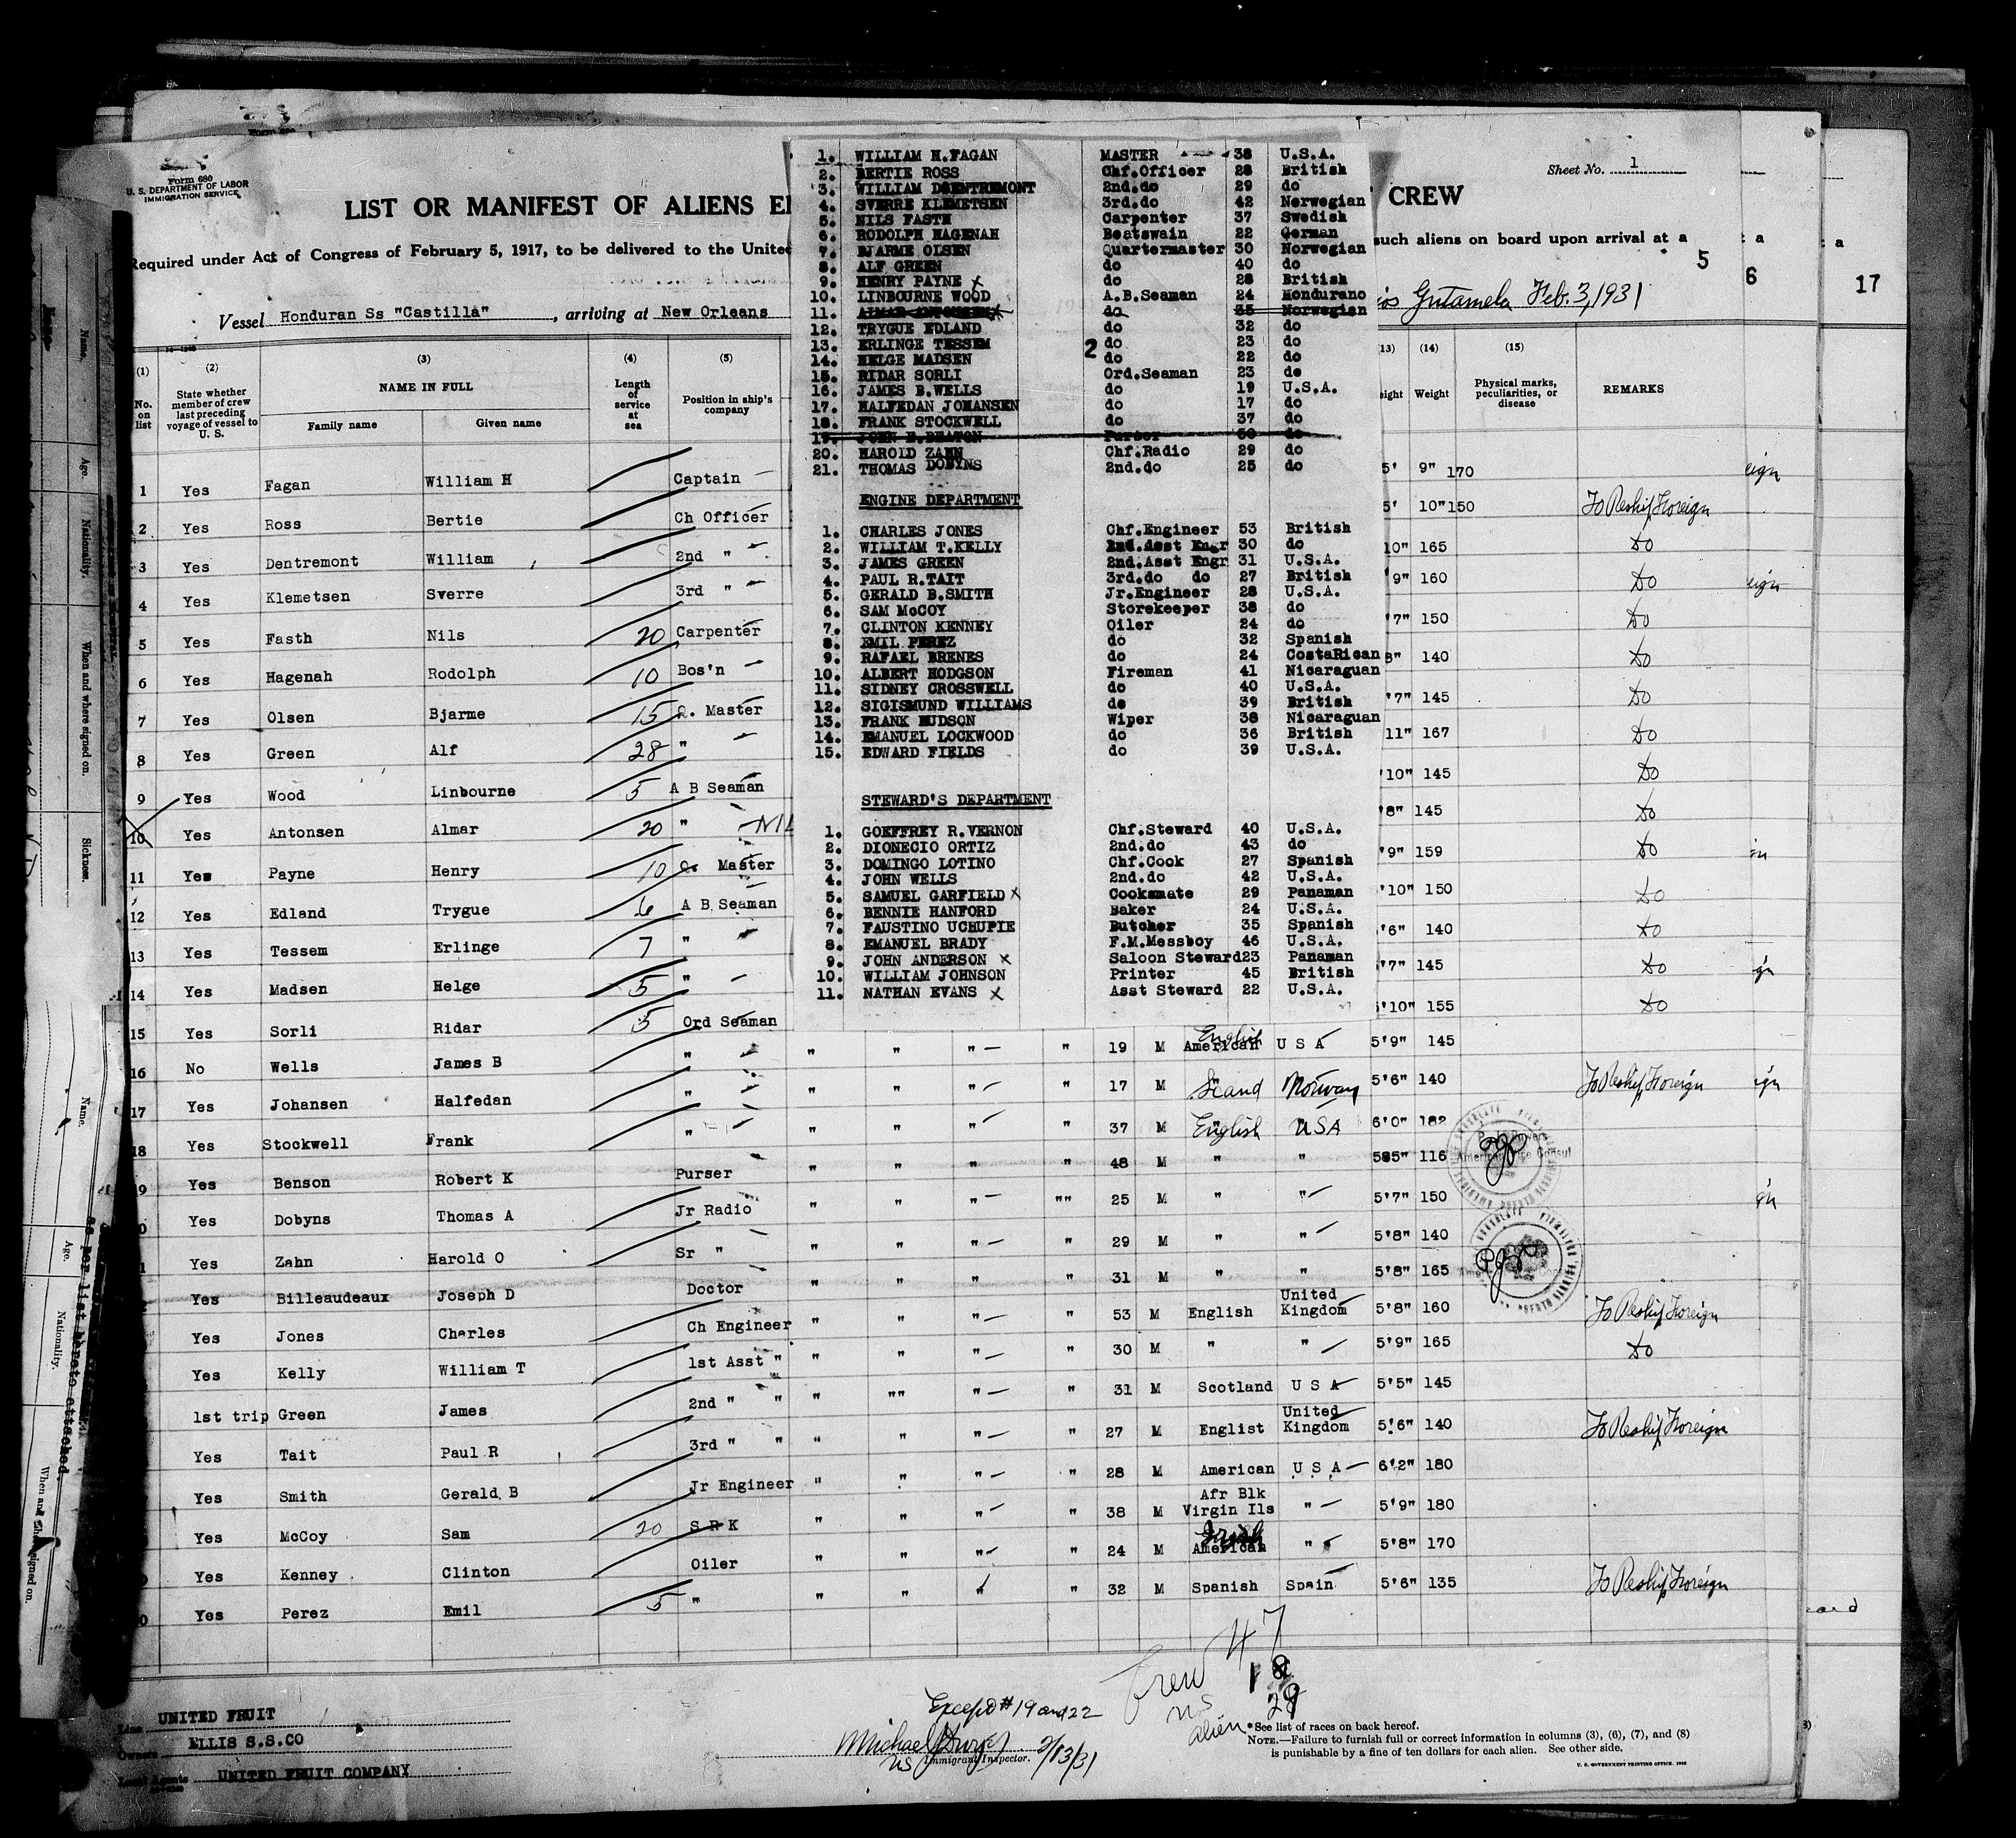 Form 680
U. S. DEPARTMENT OF LABOR
IMMIGRATION SERVICE
Sheet No. 1
LIST OR MANIFEST OF ALIENS E
CREW
Required under Act of Congress of February 5, 1917, to be delivered to the United
such aliens on board upon arrival at a
5 6 17
Vessel Honduran Ss "Castilla", arriving at New Orleans
Gutamela Feb. 3, 1931
1. WILLIAM H.FAGAN MASTER 38 U.S.A.
2. BERTIE ROSS Chf.Officer 28 British
3. WILLIAM DSENTREMONT 2nd.do 29 do
4. SVERRE KLEMETSEN 3rd.do 42 Norwegian
5. NILS FASTH Carpenter 37 Swedish
6. RODOLPH HAGENAH Boatswain 22 German
7. BJARME OLSEN Quartermaster 30 Norwegian
8. ALF GREEN do 40 do
9. HENRY PAYNE x do 28 British
10. LINBOURNE WOOD A.B.Seaman 24 Hondurano
11. ALMAR ANTONSEN x do 35 Norwegian
12. TRYGUE EDLAND do 32 do
13. ERLINGE TESSEM 2 do 23 do
14. HELGE MADSEN do 22 do
15. RIDAR SORLI Ord.Seaman 23 do
16. JAMES B.WELLS do 19 U.S.A.
17. HALFEDAN JOHANSEN do 17 do
18. FRANK STOCKWELL do 37 do
19. JOHN E.BEATON Purser 50 do
20. HAROLD ZAHN Chf.Radio 29 do
21. THOMAS DOBYNS 2nd.do 25 do
ENGINE DEPARTMENT
1. CHARLES JONES Chf.Engineer 53 British
2. WILLIAM T.KELLY 2nd.Asst Engr 30 do
3. JAMES GREEN 2nd.Asst Engr 31 U.S.A.
4. PAUL R.TAIT 3rd.do do 27 British
5. GERALD B.SMITH Jr.Engineer 28 U.S.A.
6. SAM McCOY Storekeeper 38 do
7. CLINTON KENNEY Oiler 24 do
8. EMIL PEREZ do 32 Spanish
9. RAFAEL BRENES do 24 CostaRican
10. ALBERT HODGSON Fireman 41 Nicaraguan
11. SIDNEY CROSSWELL do 40 U.S.A.
12. SIGISMUND WILLIAMS do 39 British
13. FRANK HUDSON Wiper 38 Nicaraguan
14. EMANUEL LOCKWOOD do 36 British
15. EDWARD FIELDS do 39 U.S.A.
STEWARD'S DEPARTMENT
1. GOEFFREY R.VERNON Chf.Steward 40 U.S.A.
2. DIONECIO ORTIZ 2nd.do 43 do
3. DOMINGO LOTINO Chf.Cook 27 Spanish
4. JOHN WELLS 2nd.do 42 U.S.A.
5. SAMUEL GARFIELD x Cooksmate 29 Panaman
6. BENNIE HANFORD Baker 24 U.S.A.
7. FAUSTINO UCHUPIE Butcher 35 Spanish
8. EMANUEL BRADY F.M.Messboy 46 U.S.A.
9. JOHN ANDERSON x Saloon Steward 23 Panaman
10. WILLIAM JOHNSON Printer 45 British
11. NATHAN EVANS x Asst Steward 22 U.S.A.
(1) (2) (3) (4) (5) (13) (14) (15)
No. on list
State whether member of crew last preceding voyage of vessel to U. S.
NAME IN FULL
Family name Given name
Length of service at sea
Position in ship's company
eight Weight
Physical marks, peculiarities, or disease
REMARKS
1 Yes Fagan William H Captain 5' 9" 170
2 Yes Ross Bertie Ch Officer 5' 10" 150 To Reship Foreign
3 Yes Dentremont William 2nd " 10" 165 Do
4 Yes Klemetsen Sverre 3rd " '9" 160 Do
5 Yes Fasth Nils 20 Carpenter '7" 150 Do
6 Yes Hagenah Rodolph 10 Bos'n 8" 140 Do
7 Yes Olsen Bjarme 15 Q. Master '7" 145 Do
8 Yes Green Alf 28 " 11" 167 Do
9 Yes Wood Linbourne 5 A B Seaman '10" 145 Do
10 Yes Antonsen Almar 20 " '8" 145 Do
11 Yes Payne Henry 10 Q. Master '9" 159 Do
12 Yes Edland Trygue 6 A B Seaman '10" 150 Do
13 Yes Tessem Erlinge 7 " '6" 140 Do
14 Yes Madsen Helge 5 " '7" 145 Do
15 Yes Sorli Ridar 5 Ord Seaman '10" 155 Do
16 No Wells James B " " " " " 19 M English American U S A 5'9" 145
17 Yes Johansen Halfedan " " " " " 17 M Scand Norway 5'6" 140 To Reship Foreign
18 Yes Stockwell Frank " " " " " 37 M English USA 6'0" 182
9 Yes Benson Robert K Purser " " " " 48 M " " 585" 116
0 Yes Dobyns Thomas A Jr Radio " " " "" 25 M " " 5'7" 150
1 Yes Zahn Harold O Sr " " " " " 29 M " " 5'8" 140
Yes Billeaudeaux Joseph D Doctor " " " " 31 M " " 5'8" 165
Yes Jones Charles Ch Engineer " " " " 53 M English United Kingdom 5'8" 160 To Reship Foreign
Yes Kelly William T 1st Asst " " " " " 30 M " " 5'9" 165 Do
1st trip Green James 2nd " " " "" " " 31 M Scotland U S A 5'5" 145
Yes Tait Paul R 3rd " " " " " " 27 M Englist United Kingdom 5'6" 140 To Reship Foreign
Yes Smith Gerald B Jr Engineer " " " " 28 M American U S A 6'2" 180
Yes McCoy Sam 20 S R K " " " " 38 M Afr Blk Virgin Ils " 5'9" 180
Yes Kenney Clinton Oiler " " " " 24 M Irish American " 5'8" 170
0 Yes Perez Emil 5 " " " " " 32 M Spanish Spain 5'6" 135 To Reship Foreign
Crew 47
US 18
alien 29
Except # 19 and 22
Michael
Immigrant Inspector. 2/13/31
Line UNITED FRUIT
Owners ELLIS S.S.CO
Local Agents UNITED FRUIT COMPANY
*See list of races on back hereof.
NOTE.—Failure to furnish full or correct information in columns (3), (6), (7), and (8)
is punishable by a fine of ten dollars for each alien. See other side.
U. S. GOVERNMENT PRINTING OFFICE
Name. Age. Nationality. When and where signed on. Sickness.
Name. Age. Nationality. When and where signed on.
as per list hereto attached.